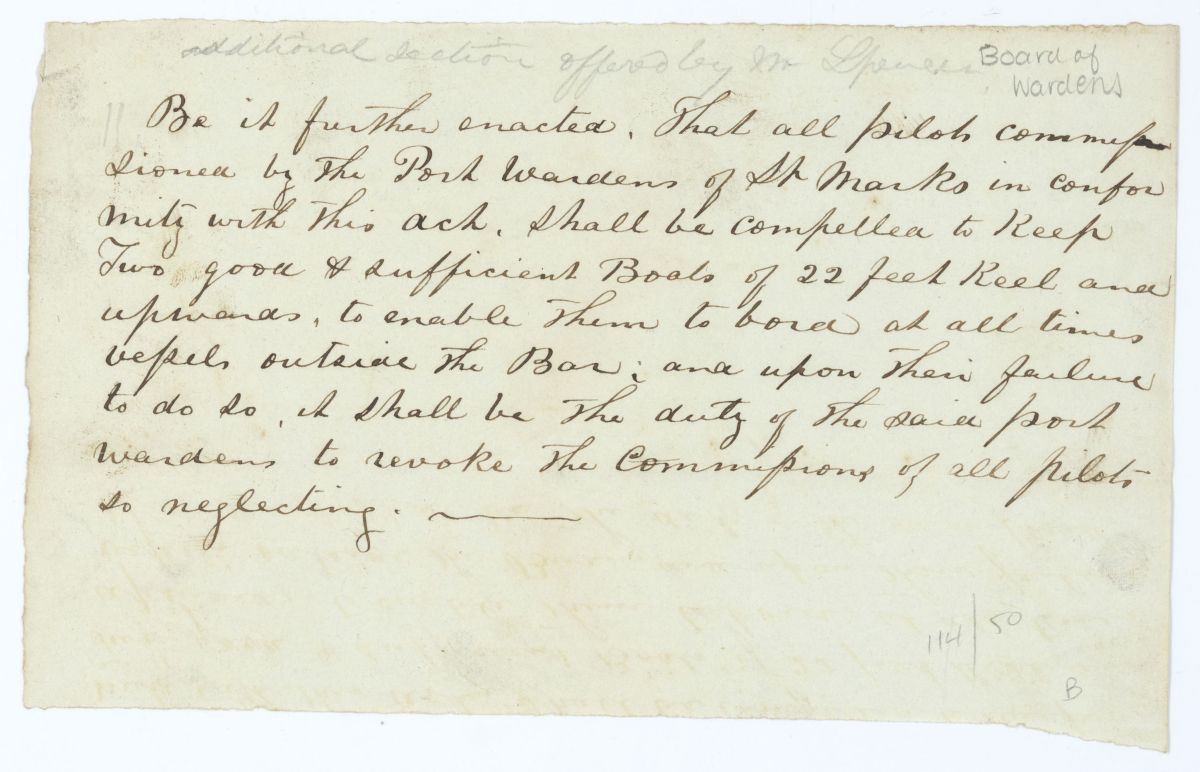 additional section offered by Mr Spencer
Board of
Wardens
Be it further enacted, That all pilots commis
sioned by the Port Wardens of St Marks in confor
mity with this act, shall be compelled to Keep
Two good & sufficient Boats of 22 feet Keel and
upwards, to enable them to bord at all times
vessels outside the Bar; and upon their failure
to do so, it shall be the duty of the said port
wardens to revoke the Commissions of all pilots
so neglecting.
114/50
B